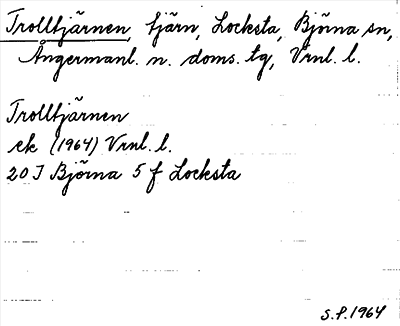 Trolltjärnen, tjärn, Locksta, Björna sn,
Ångermanl. n. doms. tg, Vrnl. l.
Trolltjärnen
ek (1964) Vrnl. l.
20 J Björna 5 f Locksta
S.P. 1964